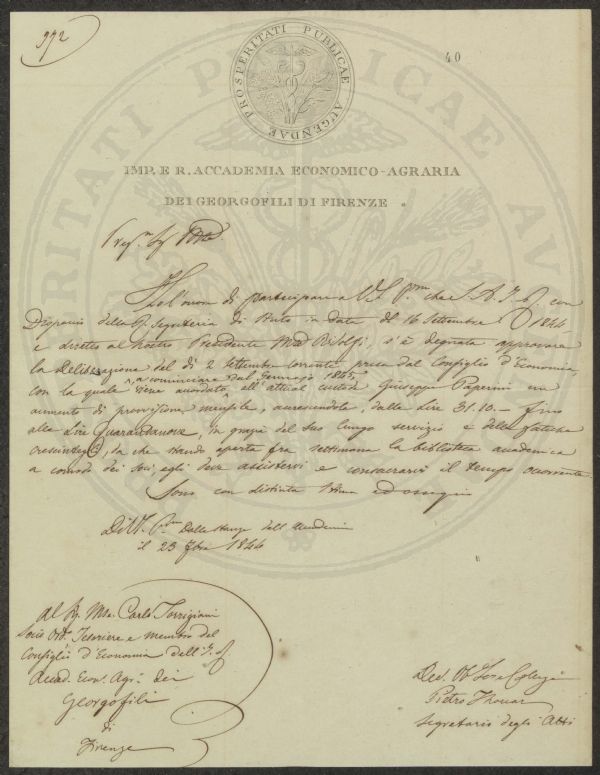 972
40
PROSPERITATI PUBLICAE AUGENDAE
IMP. E R. ACCADEMIA ECONOMICO-AGRARIA
DEI GEORGOFILI DI FIRENZE
Ho l'onore di partecipare a V.S. che S. A. I. e R. con
Dispaccio della R. Segreteria di Stato in data del 16 Settembre 1844
e diretto al Nostro Presidente Ridolfi, s'è degnata approvare
la Deliberazione del dì 2 Settembre corrente presa dal Consiglio d'Economia,
a cominciare dal Gennajo 1845
con la quale viene accordato all'attual custode Giuseppe Paperini un
aumento di provvisione mensile, accrescendola, dalle Lire 31.10.- fino
alle Lire Quarantanove, in grazia del suo lungo servizio e delle fatiche
che stando aperta fra settimana la biblioteca accademica
a comodo dei soci, egli deve assistervi e consacrarvi il tempo occorrente.
Sono con distinta stima ed ossequio
Di V.S. Dalle Stanze dell'Accademia
il 23 7bre 1844
Al Sig. Mse. Carlo Torrigiani
Socio Ord. Tesoriere e membro del
Consiglio d'Economia dell'I. e R.
Accad. Econ. Agr. dei
Georgofili
di
Firenze
Dev. Obb.
Pietro Thouar
Segretario degli Atti